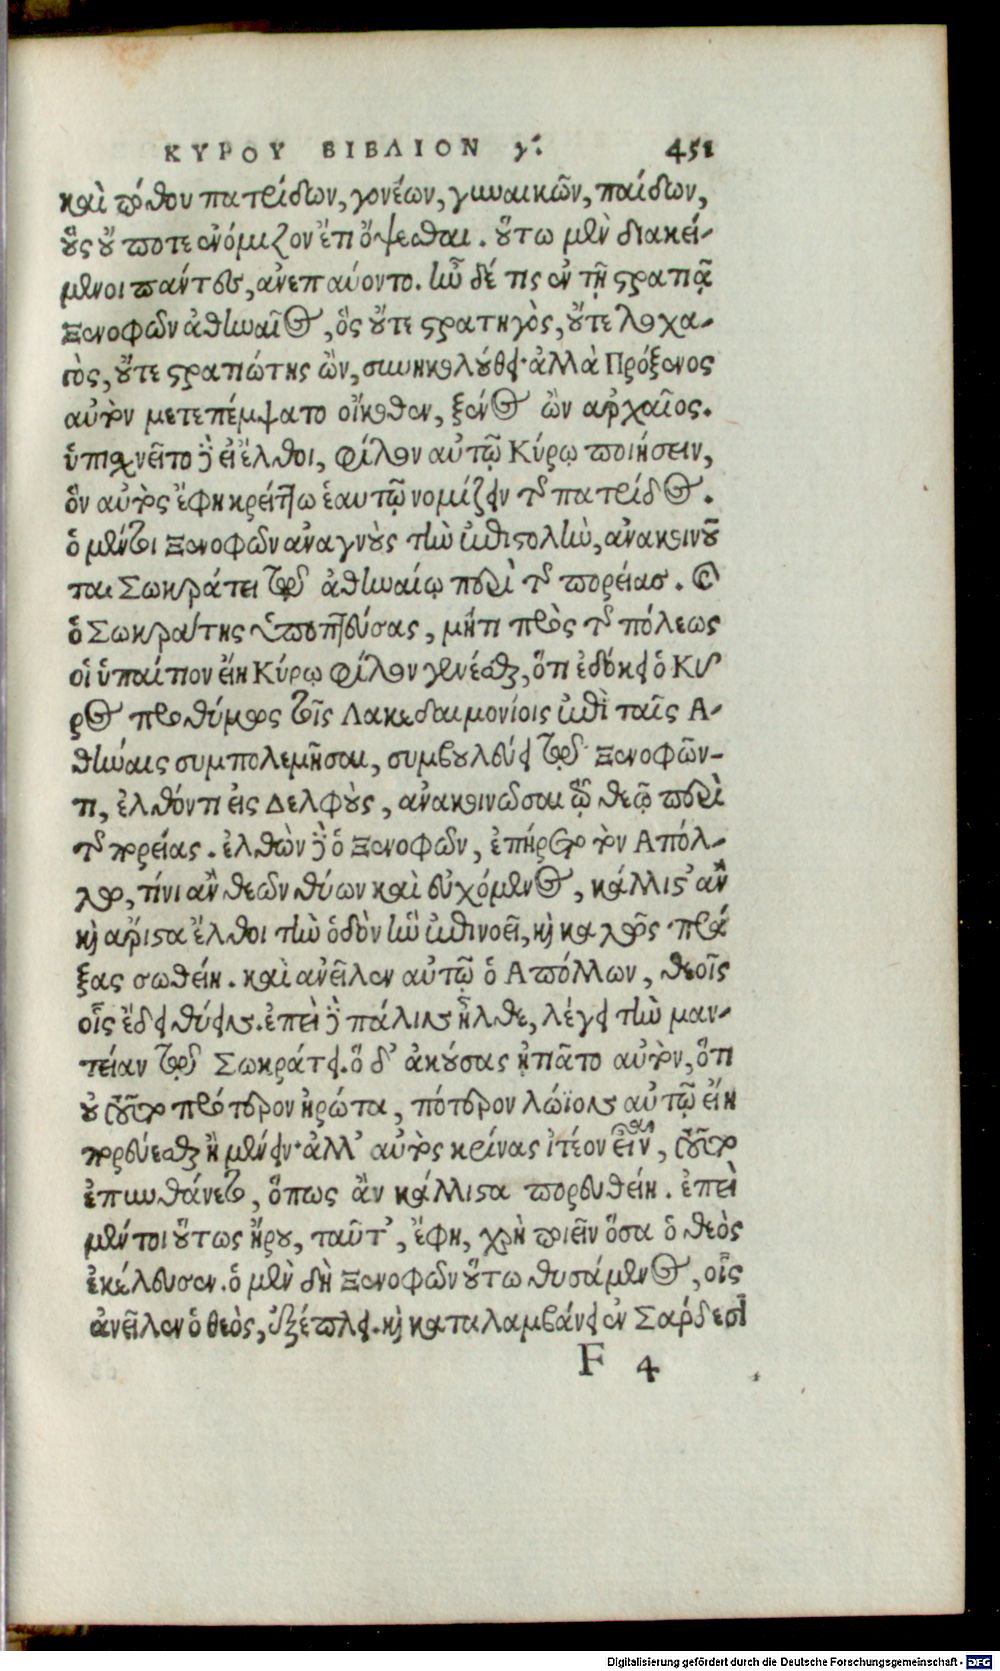 ΚΥΡΟΥ ΒΙΒΛΙΟΝ γ΄. 451
καὶ πόθου πατρίδων, γονέων, γυναικῶν, παίδων,
οὓς οὔ ποτε ἐνόμιζον ἔτι ὄψεσθαι. οὕτω μὲν διακεί-
μενοι πάντες, ἀνεπαύοντο. ἦν δέ τις ἐν τῇ στρατιᾷ
Ξενοφῶν ἀθηναῖος, ὃς οὔτε στρατηγὸς, οὔτε λοχα-
γὸς, οὔτε στρατιώτης ὢν, συνηκολούθει· ἀλλὰ Πρόξενος
αὐτὸν μετεπέμψατο οἴκοθεν, ξένος ὢν ἀρχαῖος.
ὑπισχνεῖτο δὲ εἰ ἔλθοι, φίλον αὐτῷ Κύρῳ ποιήσειν,
ὃν αὐτὸς ἔφη κρείττω ἑαυτῷ νομίζειν τῆς πατρίδος.
ὁ μέντοι Ξενοφῶν ἀναγνοὺς τὴν ἐπιστολὴν, ἀνακοινοῦ
ται Σωκράτει τῷ ἀθηναίῳ περὶ τῆς πορείας. καὶ
ὁ Σωκράτης ὑποπτεύσας, μή τι πρὸς τῆς πόλεως
οἱ ὑπαίτιον εἴη Κύρῳ φίλον γενέσθαι, ὅτι ἐδόκει ὁ Κῦ
ρος προθύμως τοῖς Λακεδαιμονίοις ἐπὶ ταῖς Ἀ-
θήναις συμπολεμῆσαι, συμβουλεύει τῷ Ξενοφῶν-
τι, ἐλθόντι εἰς Δελφοὺς, ἀνακοινῶσαι τῷ θεῷ περὶ
τῆς πορείας. ἐλθὼν δὲ ὁ Ξενοφῶν, ἐπήρετο τὸν Ἀπόλ-
λω, τίνι ἂν θεῶν θύων καὶ εὐχόμενος, κάλλιστ᾽ ἂν
καὶ ἄριστα ἔλθοι τὴν ὁδὸν ἣν ἐπινοεῖ, καὶ καλῶς πρά
ξας σωθείη. καὶ ἀνεῖλεν αὐτῷ ὁ Ἀπόλλων, θεοῖς
οἷς ἔδει θύειν. ἐπεὶ δὲ πάλιν ἦλθε, λέγει τὴν μαν-
τείαν τῷ Σωκράτει. ὁ δ᾽ ἀκούσας ᾐτιᾶτο αὐτὸν, ὅτι
οὐ τοῦτο πρότερον ἠρώτα, πότερον λώϊον αὐτῷ εἴη
πορεύεσθαι ἢ μένειν· ἀλλ᾽ αὐτὸς κρίνας ἰτέον εἶναι, τοῦτο
ἐπυνθάνετο, ὅπως ἂν κάλλιστα πορευθείη. ἐπεὶ
μέντοι οὕτως ἤρου, ταῦτ᾽, ἔφη, χρὴ ποιεῖν ὅσα ὁ θεὸς
ἐκέλευσεν. ὁ μὲν δὴ Ξενοφῶν οὕτω θυσάμενος, οἷς
ἀνεῖλεν ὁ θεὸς, ἐξέπλει. καὶ καταλαμβάνει ἐν Σάρδεσι
F 4
Digitalisierung gefördert durch die Deutsche Forschungsgemeinschaft - DFG